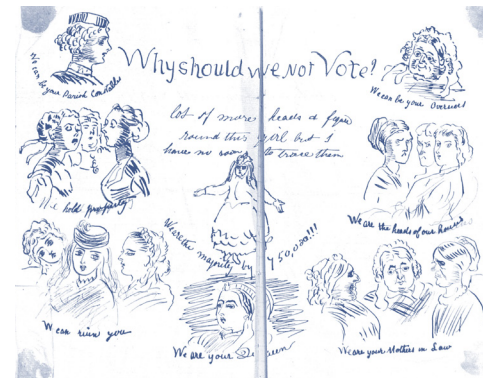 Why should we not Vote?
We can be your Parish Constables
We can be your Overseers
lot of more heads & figures
round this girl but I
have no room to trace them
We hold property
We are the heads of our Houses
We are the majority by 50,000!!!
We can ruin you
We are your Queen
We are your Mothers in Law